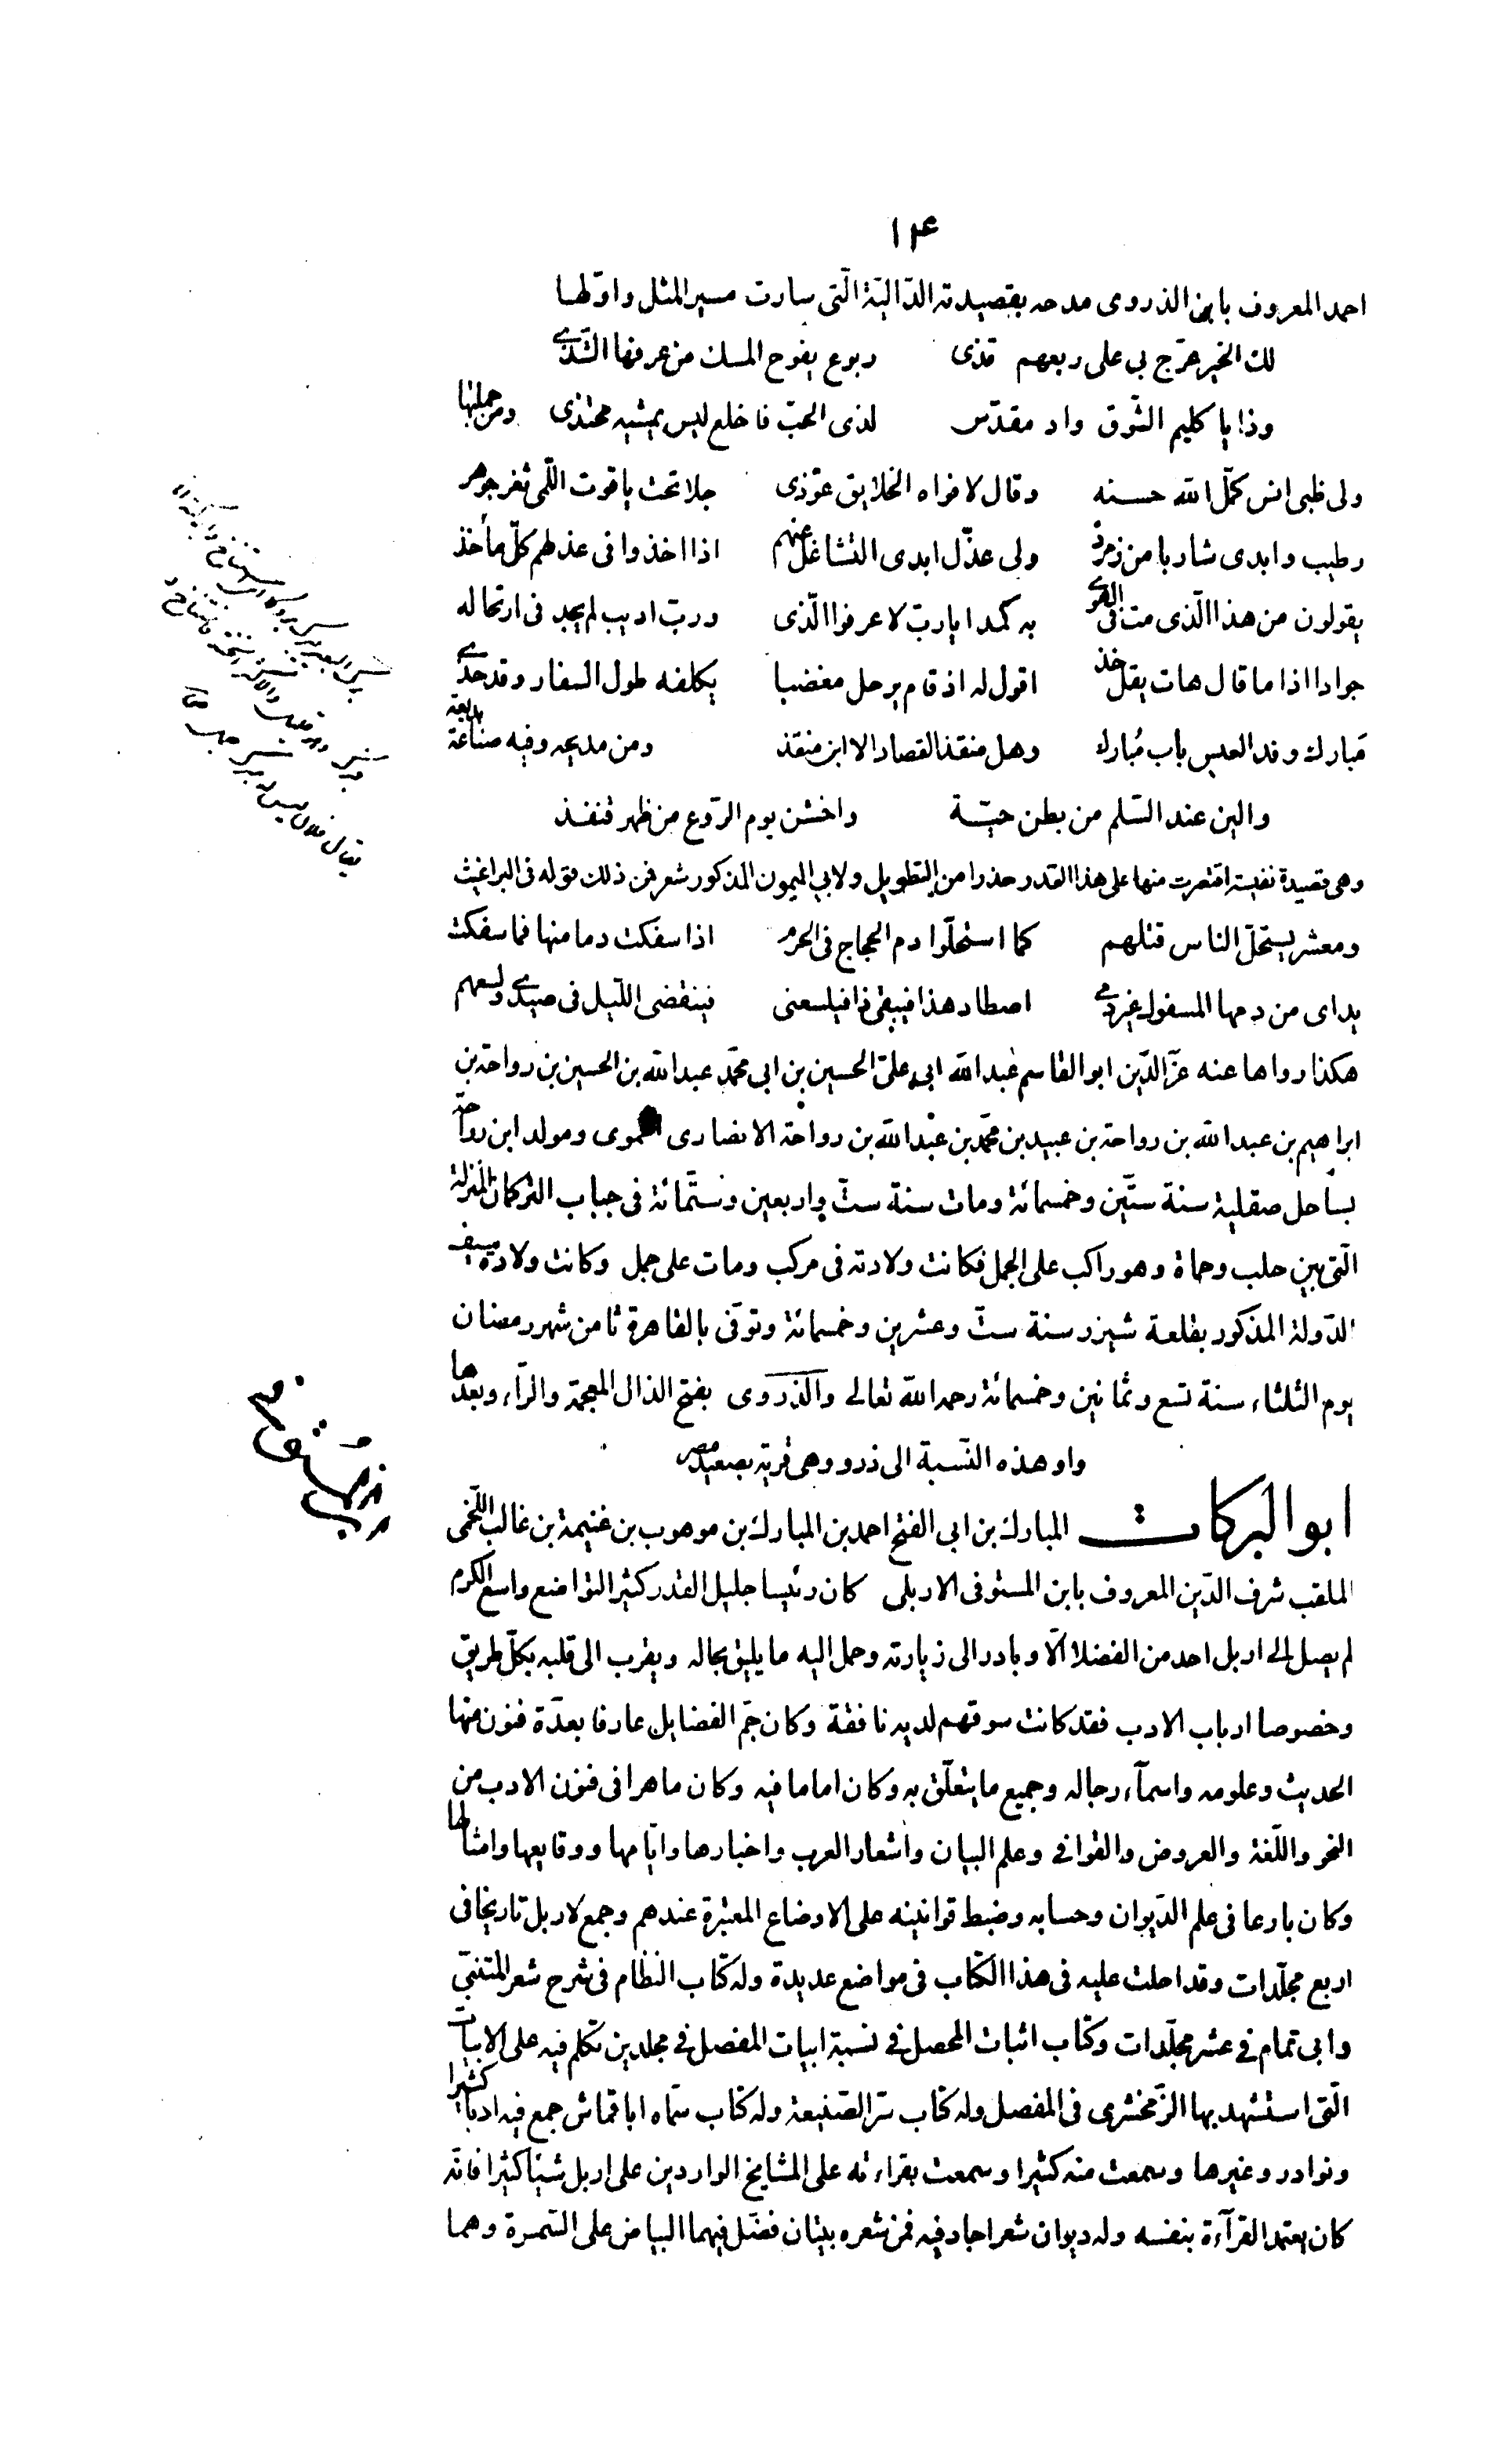 ١٢۴
احمد المعروف بابن الذروى مدحه بقصيدته الدّاليّة الّتى سارت مسير المثل واوّلها
لك الخير عرّج بى على ربعهم فذى ربوع يفوح المسك من عرفها الشّذى
وذا يا كليم الشّوق واد مقدّس لذى الحبّ فاخلع ليس يمشيه محتذى ومن جملتها
ولى ظبى انس كمّل الله حسنه وقال لافواه الخلايق عوّذى جلا تحت ياقوت اللّمى ثغر جوهر
رطيب وابدى شاربا من زمرّذ ولى عذّل ابدى التشاغل عنهم اذا اخذوا فى عذلهم كلّ مأخذ
يقولون من هذا الّذى مت فى الهوى به كمدا يا ربّ لا عرفوا الّذى وربّ اديب لم يجد فى ارتحاله
جوادا اذا ما قال هات يقل خذ اقول له اذ قام يرحل مغضبا يكلفه طول السفار وقد حذى
مبارك وفد العيس باب مُبارك وهل منقذ القصاد الا ابن منقذ ومن مديحه وفيه صناعة بديعة
والين عند السّلم من بطن حيّة واخشن يوم الرّوع من ظهر قنفذ
وهى قصيدة نفيسة اقتصرت منها على هذا القدر حذرا من التطويل ولابى الميمون المذكور شعر فمن ذلك قوله فى البراغيث
ومعشر يستحلّ الناس قتلهم كما استحلّوا دم الحجاج فى الحرم اذا سفكت دما منها فما سفكت
يداى من دمها المسفوك غير دمى اصطاد هذا فيبقى ذا فيلسعنى فينقضى اللّيل فى صيدى ولسعهم
هكذا رواها عنه عزّ الدّين ابو القاسم عبد الله ابى على الحسين بن ابى محمّد عبد الله بن الحسين بن رواحة بن
ابراهيم بن عبد الله بن رواحة بن عبيد بن محمّد بن عبد الله بن رواحة الانصارى الحموى ومولد ابن رواحة
بساحل صقلية سنة ستّين وخمسمائة ومات سنة ستّ واربعين وستّمائة فى جباب التركمان المنزلة
الّتى بين حلب وحماة وهو راكب على الجمل فكانت ولادته فى مركب ومات على جمل وكانت ولادة سيف
الدّولة المذكور بقلعة شيزر سنة ستّ وعشرين وخمسمائة وتوفّى بالقاهرة ثامن شهر رمضان
يوم الثلثاء سنة تسع وثمانين وخمسمائة رحمه الله تعالى والذروى بفتح الذال المعجمة والرّاء وبعدها
واو هذه النّسبة الى ذرو وهى قرية بصعيد مصر
ابو البركات المبارك بن ابى الفتح احمد بن المبارك بن موهوب بن غنيمة بن غالب اللّخمى
الملقب شرف الدّين المعروف بابن المستوفى الاربلى كان رئيسا جليل القدر كثير التواضع واسع الكرم
لم يصل الى اربل احد من الفضلا الّا وبادر الى زيارته وحمل اليه ما يليق بحاله ويقرب الى قلبه بكلّ طريق
وخصوصا ارباب الادب فقد كانت سوقهم لديه نافقة وكان جمّ الفضايل عارفا بعدّة فنون منها
الحديث وعلومه واسمآء رجاله وجميع ما يتعلّق به وكان اماما فيه وكان ماهرا فى فنون الادب من
النحو واللّغة والعروض والقوافى وعلم البيان واشعار العرب واخبارها وايّامها ووقايعها وامثالها
وكان بارعا فى علم الدّيوان وحسابه وضبط قوانينه على الاوضاع المعتبرة عندهم وجمع لاربل تاريخا فى
اربع مجلّدات وقد احلت عليه فى هذا الكتاب فى مواضع عديدة وله كتاب النظام فى شرح شعر المتنبّى
وابى تمام فى عشر مجلّدات وكتاب اثبات المحصل فى نسبة ابيات المفصل فى مجلدين تكلم فيه على الابيات
الّتى استشهد بها الزّمخشرى فى المفصل وله كتاب سرّ الصّنيعة وله كتاب سمّاه ابا قماش جمع فيه ادبا كثيرا
ونوادر وغيرها وسمعت منه كثيرا وسمعت بقراءته على المشايخ الواردين على اربل شيئا كثيرا فانّه
كان يعتمد القرآءة بنفسه وله ديوان شعر اجاد فيه فمن شعره بيتان فضّل فيهما البياض على السّمرة وهما